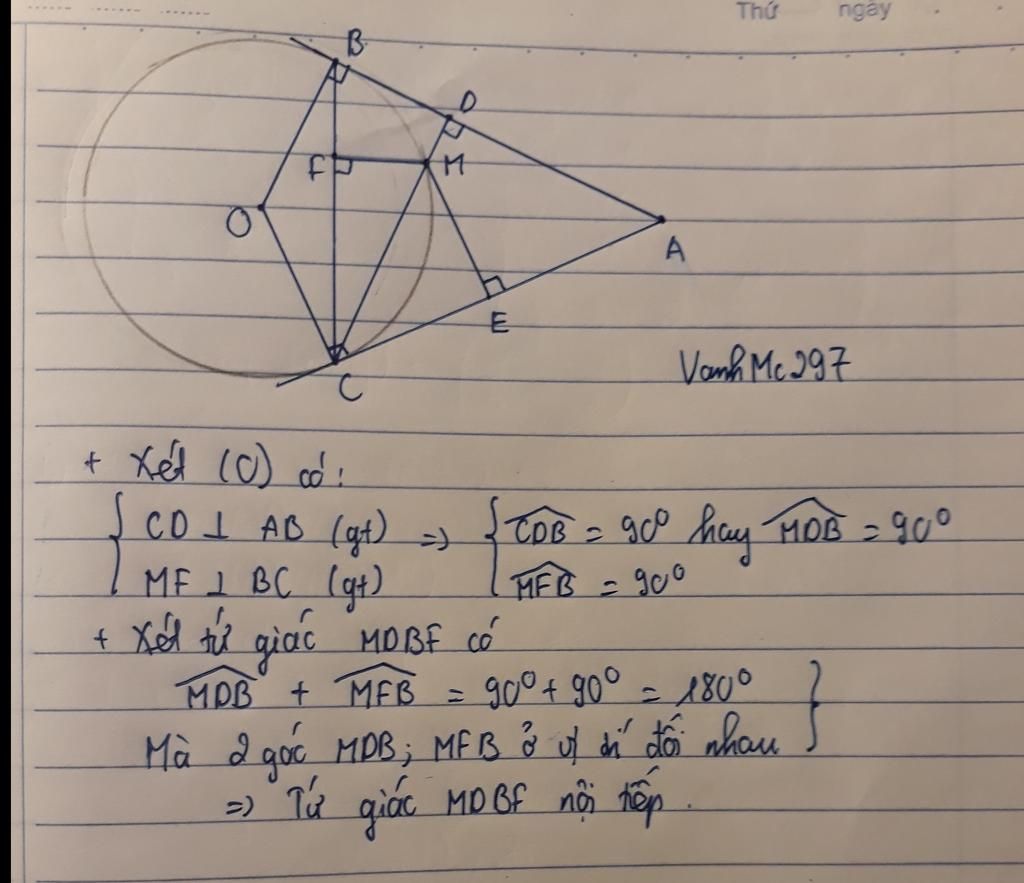 Thứ ngày
B
D
F M
O
A
E
C
VanhMc297
+ Xét (O) có:
CD ⊥ AB (gt) => CDB = 90° hay MDB = 90°
MF ⊥ BC (gt) MFB = 90°
+ Xét tứ giác MDBF có
MDB + MFB = 90° + 90° = 180°
Mà 2 góc MDB; MFB ở vị trí đối nhau
=> Tứ giác MDBF nội tiếp.